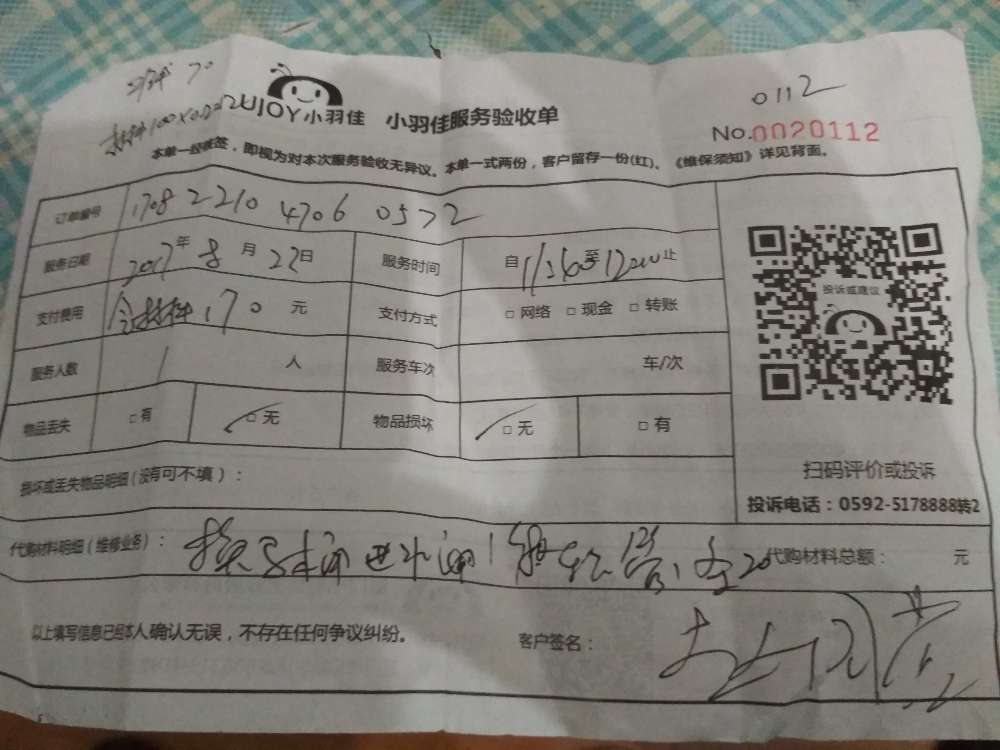 70
0112
ZUJOY小羽佳 小羽佳服务验收单
No.0020112
本单一经核签，即视为对本次服务验收无异议。本单一式两份，客户留存一份(红)。《维保须知》详见背面。
订单编号 1708 2210 4706 0572
服务日期 2017年8月22日 服务时间 自 至 止
支付费用 含材料170元 支付方式 □网络 □现金 □转账
投诉或建议
服务人数 1 人 服务车次 车/次
物品丢失 □有 □无 物品损坏 □无 □有
扫码评价或投诉
损坏或丢失物品明细(没有可不填)：
投诉电话：0592-5178888转2
代购材料明细(维修业务)： 换 进水 代购材料总额： 元
以上填写信息已经本人确认无误，不存在任何争议纠纷。 客户签名：